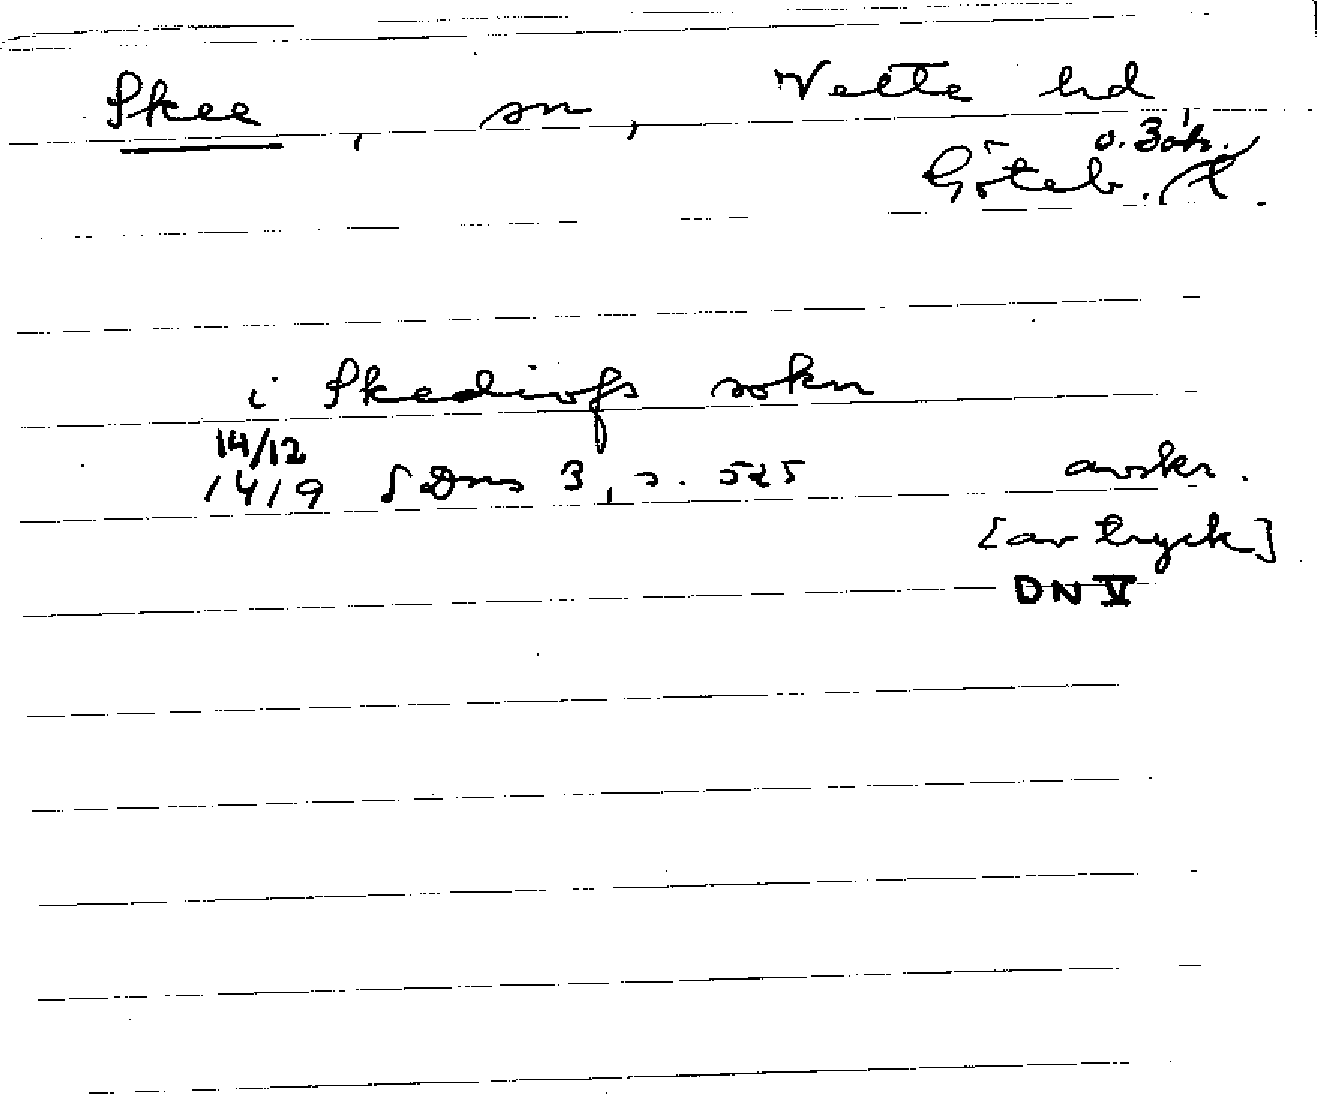 Skee, sn, Vette hd
o. Boh.
Göteb. l.
i Skediofs sokn
14/12
1419 SDns 3, s. 525 avskr.
[av tryck]
DN V